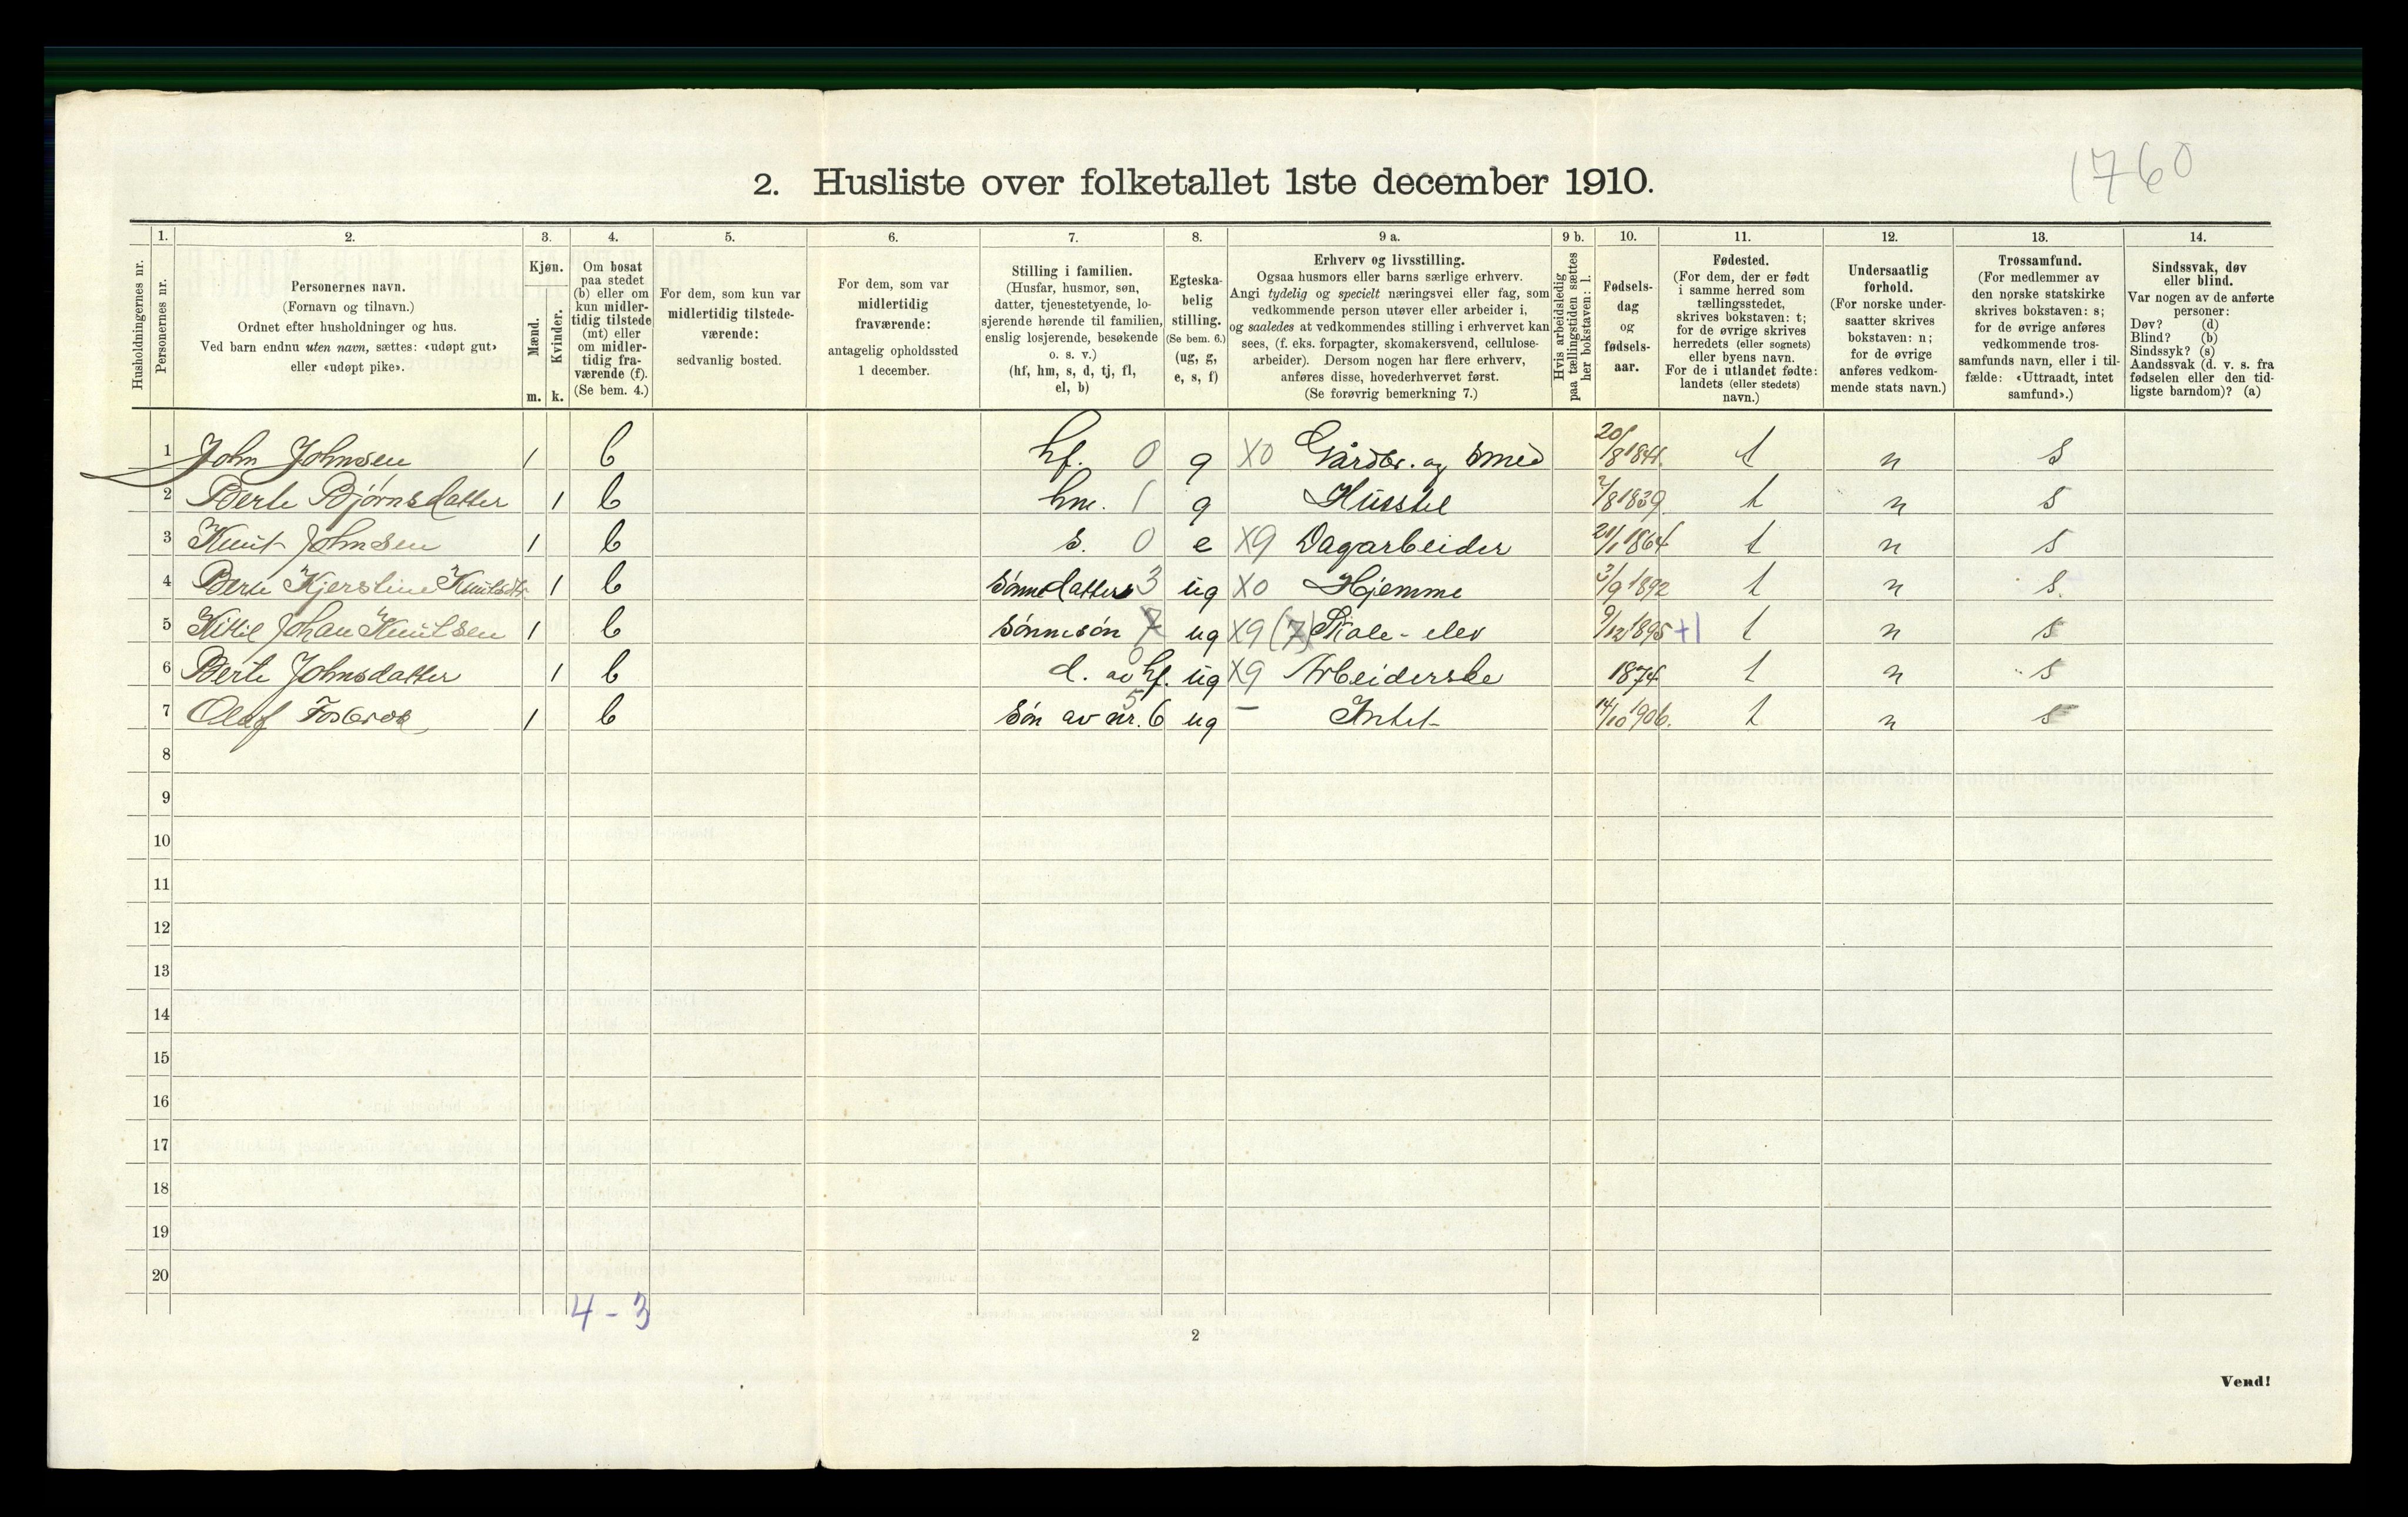 1760
2. Husliste over folketallet 1ste december 1910.
Husholdningernes nr.
1.
Personernes nr.
2.
Personernes navn.
(Fornavn og tilnavn.)
Ordnet efter husholdninger og hus.
Ved barn endnu uten navn, sættes: «udøpt gut»
eller «udøpt pike».
3.
Kjøn.
Mænd.
Kvinder.
m. k.
4.
Om bosat
paa stedet
(b) eller om
kun midler-
tidig tilstede
(mt) eller
om midler-
tidig fra-
værende (f).
(Se bem. 4.)
5.
For dem, som kun var
midlertidig tilstede-
værende:
sedvanlig bosted.
6.
For dem, som var
midlertidig
fraværende:
antagelig opholdssted
1 december.
7.
Stilling i familien.
(Husfar, husmor, søn,
datter, tjenestetyende, lo-
sjerende hørende til familien,
enslig losjerende, besøkende
o. s. v.)
(hf, hm, s, d, tj, fl,
el, b)
8.
Egteska-
belig
stilling.
(Se bem. 6.)
(ug, g,
e, s, f)
9 a.
Erhverv og livsstilling.
Ogsaa husmors eller barns særlige erhverv.
Angi tydelig og specielt næringsvei eller fag, som
vedkommende person utøver eller arbeider i,
og saaledes at vedkommendes stilling i erhvervet kan
sees, (f. eks. forpagter, skomakersvend, cellulose-
arbeider). Dersom nogen har flere erhverv,
anføres disse, hovederhvervet først.
(Se forøvrig bemerkning 7.)
9 b.
Hvis arbeidsledig
paa tællingstiden sættes
her bokstaven: l.
10.
Fødsels-
dag
og
fødsels-
aar.
11.
Fødested.
(For dem, der er født
i samme herred som
tællingsstedet,
skrives bokstaven: t;
for de øvrige skrives
herredets (eller sognets)
eller byens navn.
For de i utlandet fødte:
landets (eller stedets)
navn.)
12.
Undersaatlig
forhold.
(For norske under-
saatter skrives
bokstaven: n;
for de øvrige
anføres vedkom-
mende stats navn.)
13.
Trossamfund.
(For medlemmer av
den norske statskirke
skrives bokstaven: s;
for de øvrige anføres
vedkommende tros-
samfunds navn, eller i til-
fælde: «Uttraadt, intet
samfund».)
14.
Sindssvak, døv
eller blind.
Var nogen av de anførte
personer:
Døv? (d)
Blind? (b)
Sindssyk? (s)
Aandssvak (d. v. s. fra
fødselen eller den tid-
ligste barndom)? (a)
1 John Johnsen 1 b hf. 0 g X0 Gårdbr. og Smed 20/8 1841. t n s
2 Berte Bjørnsdatter 1 b hm. 1 g Husstel 2/8 1839 t n s
3 Knut Johnsen 1 b s. 0 e X9 Dagarbeider 21/1 1864 t n s
4 Berte Kjerstine Knutsdtr. 1 b Sønnedatter 3 ug X0 Hjemme 3/9 1892 t n s.
5 Kittil Johan Knutsen 1 b Sønnesøn 7 ug X9 (7) Skole-elev 9/12 1895 +1 t n s
6 Berte Johnsdatter 1 b d. av hf. 0 ug X9 Arbeiderske 1874 t n s
7 Olaf 1 b Søn av nr. 6 5 ug - Intet 14/10 1906. t n s
8
9
10
11
12
13
14
15
16
17
18
19
20
4 - 3
2
Vend!